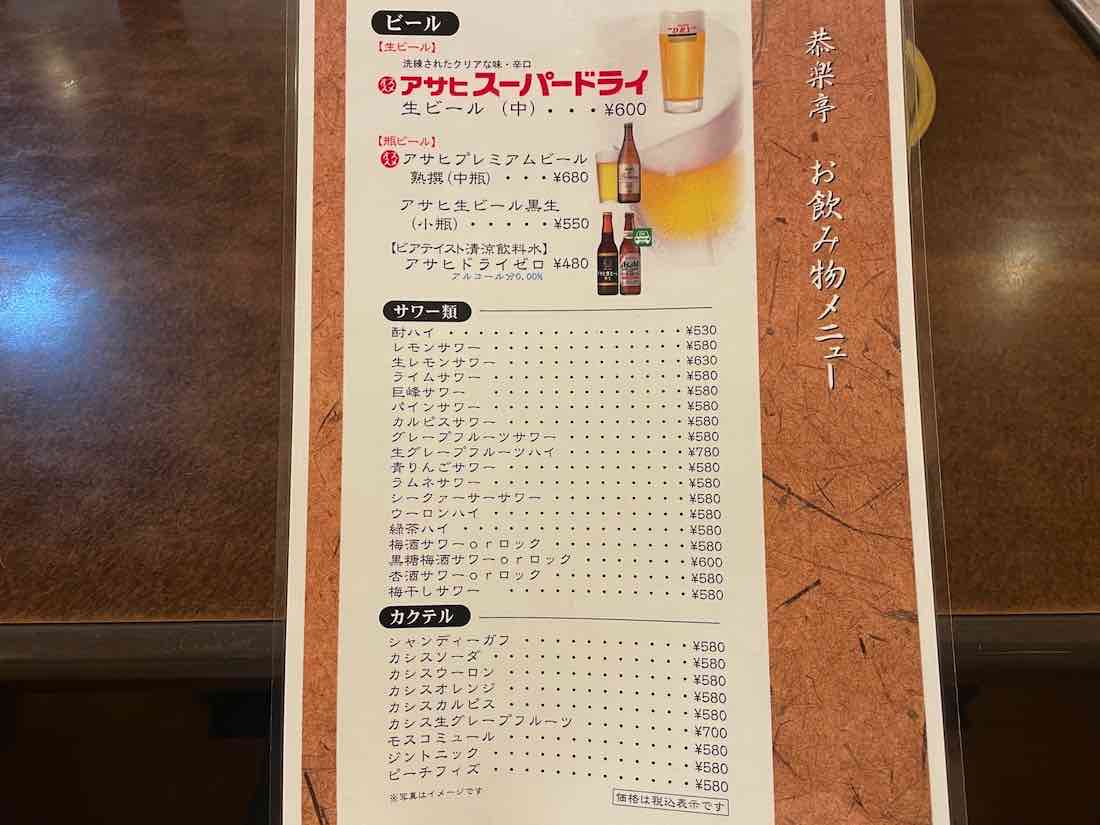 ビール
【生ビール】
洗練されたクリアな味・辛口
アサヒスーパードライ
生ビール (中)・・・¥600
【瓶ビール】
アサヒプレミアムビール
熟撰(中瓶) ・・・¥680
アサヒ生ビール黒生
(小瓶)・・・・・¥550
【ビアテイスト清涼飲料水】
アサヒドライゼロ ¥480
アルコール分0.00%
サワー類
酎ハイ ¥530
レモンサワー ¥580
生レモンサワー ¥630
ライムサワー ¥580
巨峰サワー ¥580
パインサワー ¥580
カルピスサワー ¥580
グレープフルーツサワー ¥580
生グレープフルーツハイ ¥780
青りんごサワー ¥580
ラムネサワー ¥580
シークァーサーサワー ¥580
ウーロンハイ ¥580
緑茶ハイ ¥580
梅酒サワーorロック ¥580
黒糖梅酒サワーorロック ¥600
杏酒サワーorロック ¥580
梅干しサワー ¥580
カクテル
シャンディーガフ ¥580
カシスソーダ ¥580
カシスウーロン ¥580
カシスオレンジ ¥580
カシスカルピス ¥580
カシス生グレープフルーツ ¥700
モスコミュール ¥580
ジントニック ¥580
ピーチフィズ ¥580
※写真はイメージです
価格は税込表示です
恭楽亭 お飲み物メニュー